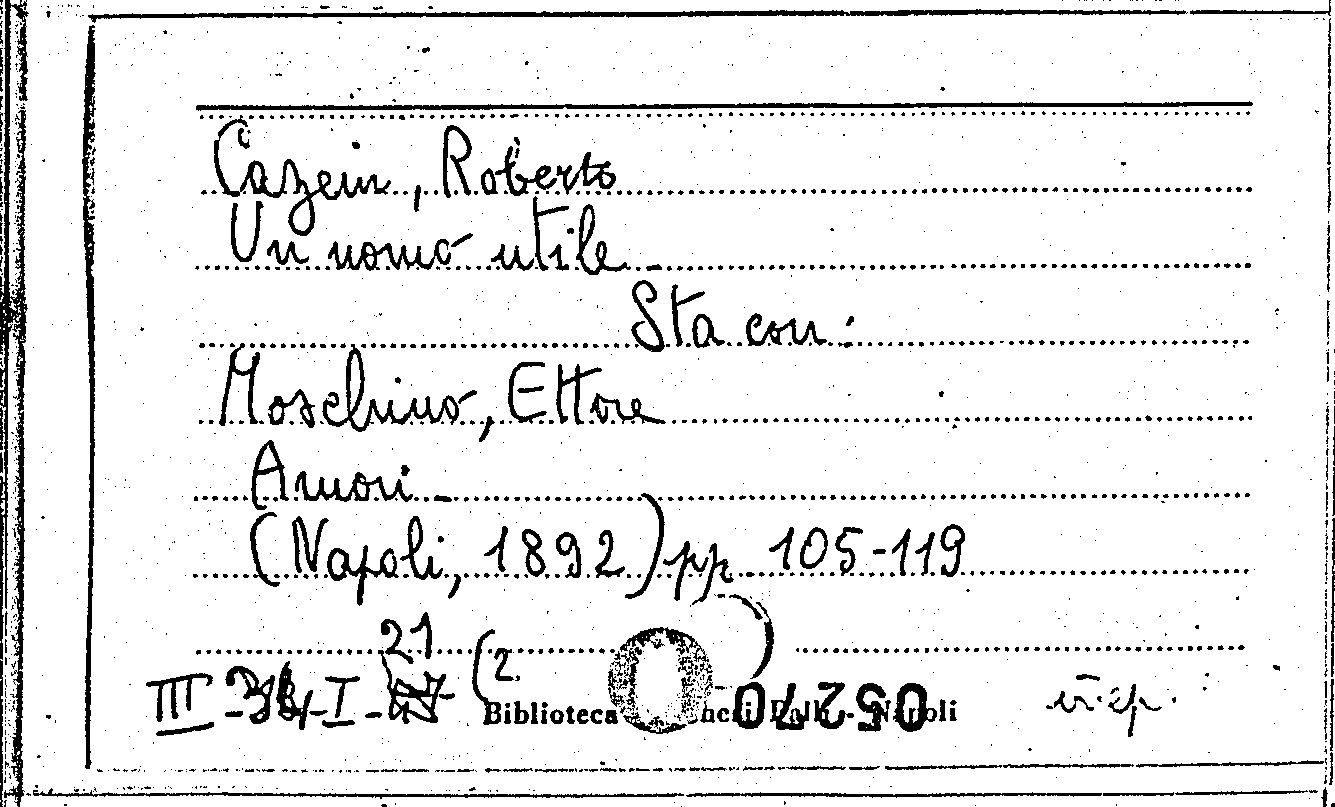 Cazein, Roberto
Un uomo utile -
Sta con:
Moschino, Ettore
Amori -
(Napoli, 1892) pp. 105-119
21
III - I - (2.
Biblioteca Napoli
052270